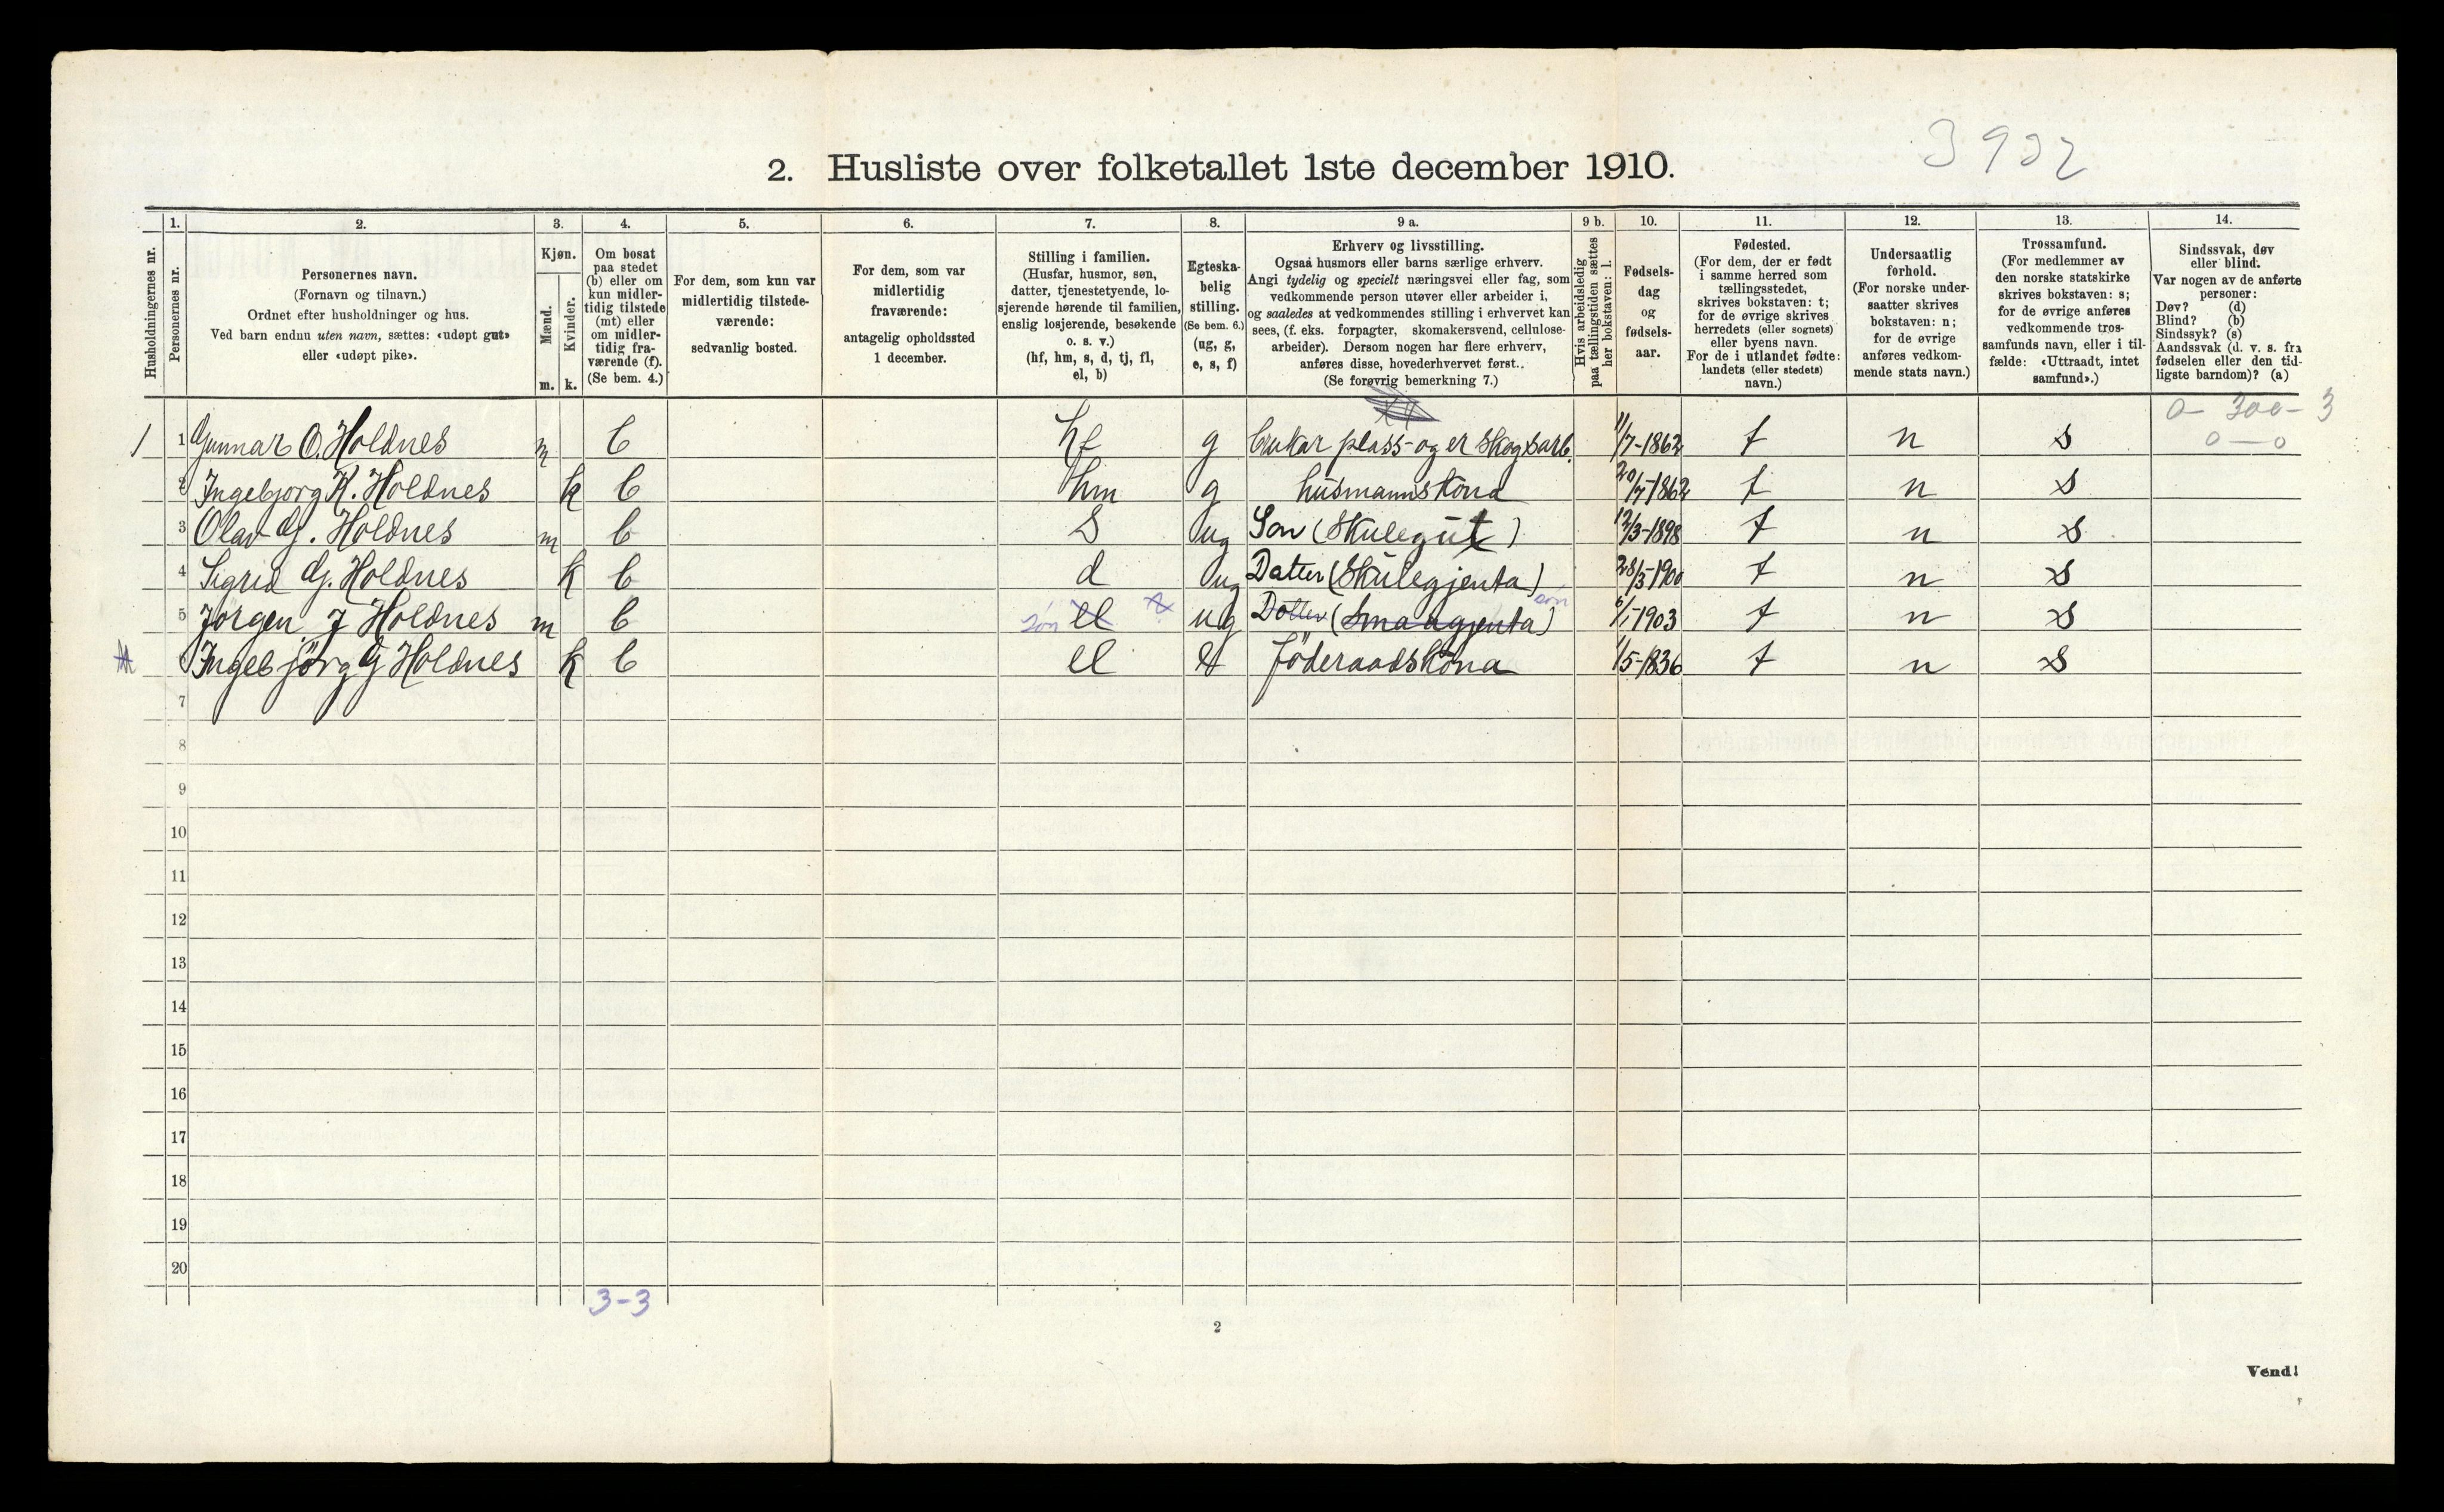 3902
2. Husliste over folketallet 1ste december 1910.
Husholdningernes nr.
1.
Personernes nr.
2.
Personernes navn.
(Fornavn og tilnavn.)
Ordnet efter husholdninger og hus.
Ved barn endnu uten navn, sættes: «udøpt gut»
eller «udøpt pike».
3.
Kjøn.
Mænd.
Kvinder.
m. k.
4.
Om bosat
paa stedet
(b) eller om
kun midler-
tidig tilstede
(mt) eller
om midler-
tidig fra-
værende (f).
(Se bem. 4.)
5.
For dem, som kun var
midlertidig tilstede-
værende:
sedvanlig bosted.
6.
For dem, som var
midlertidig
fraværende:
antagelig opholdssted
1 december.
7.
Stilling i familien.
(Husfar, husmor, søn,
datter, tjenestetyende, lo-
sjerende hørende til familien,
enslig losjerende, besøkende
o. s. v.)
(hf, hm, s, d, tj, fl,
el, b)
8.
Egteska-
belig
stilling.
(Se bem. 6.)
(ug, g,
e, s, f)
9 a.
Erhverv og livsstilling.
Ogsaa husmors eller barns særlige erhverv.
Angi tydelig og specielt næringsvei eller fag, som
vedkommende person utøver eller arbeider i,
og saaledes at vedkommendes stilling i erhvervet kan
sees, (f. eks. forpagter, skomakersvend, cellulose-
arbeider). Dersom nogen har flere erhverv,
anføres disse, hovederhvervet først..
(Se forøvrig bemerkning 7.)
9 b.
Hvis arbeidsledig
paa tællingstiden sættes
her bokstaven: l.
10.
Fødsels-
dag
og
fødsels-
aar.
11.
Fødested.
(For dem, der er født
i samme herred som
tællingsstedet,
skrives bokstaven: t;
for de øvrige skrives
herredets (eller sognets)
eller byens navn.
For de i utlandet fødte:
landets (eller stedets)
navn.)
12.
Undersaatlig
forhold.
(For norske under-
saatter skrives
bokstaven: n;
for de øvrige
anføres vedkom-
mende stats navn.)
13.
Trossamfund.
(For medlemmer av
den norske statskirke
skrives bokstaven: s;
for de øvrige anføres
vedkommende tros-
samfunds navn, eller i til-
fælde: «Uttraadt, intet
samfund».)
14.
Sindssvak, døv
eller blind.
Var nogen av de anførte
personer:
Døv? (d)
Blind? (b)
Sindssyk? (s)
Aandssvak (d. v. s. fra
fødselen eller den tid-
ligste barndom)? (a)
0- 300-3
0-0
1 1 Gunnar O. Holdnes m b hf g brukar plass-og er skogsarb. 11/7-1862 t n s
2 Ingebjorg K. Holdnes k b hm g husmannskona 20/7-1862 t n s
3 Olav G. Holdnes m b s ug Son (Skulegut) 12/3-1898 t n s
4 Sigrid G. Holdnes k b d ug Datter (Skulegjenta) 28/5-1900 t n s
5 Jørgen J Holdnes m b søn el ug Dotter (Smaagjenta) søn 6/1-1903 t n s
6 Ingebjörg G Holdnes k b el e Föderaadskona 1/5-1836 t n s
7
8
9
10
11
12
13
14
15
16
17
18
19
20
3-3
2
Vend!